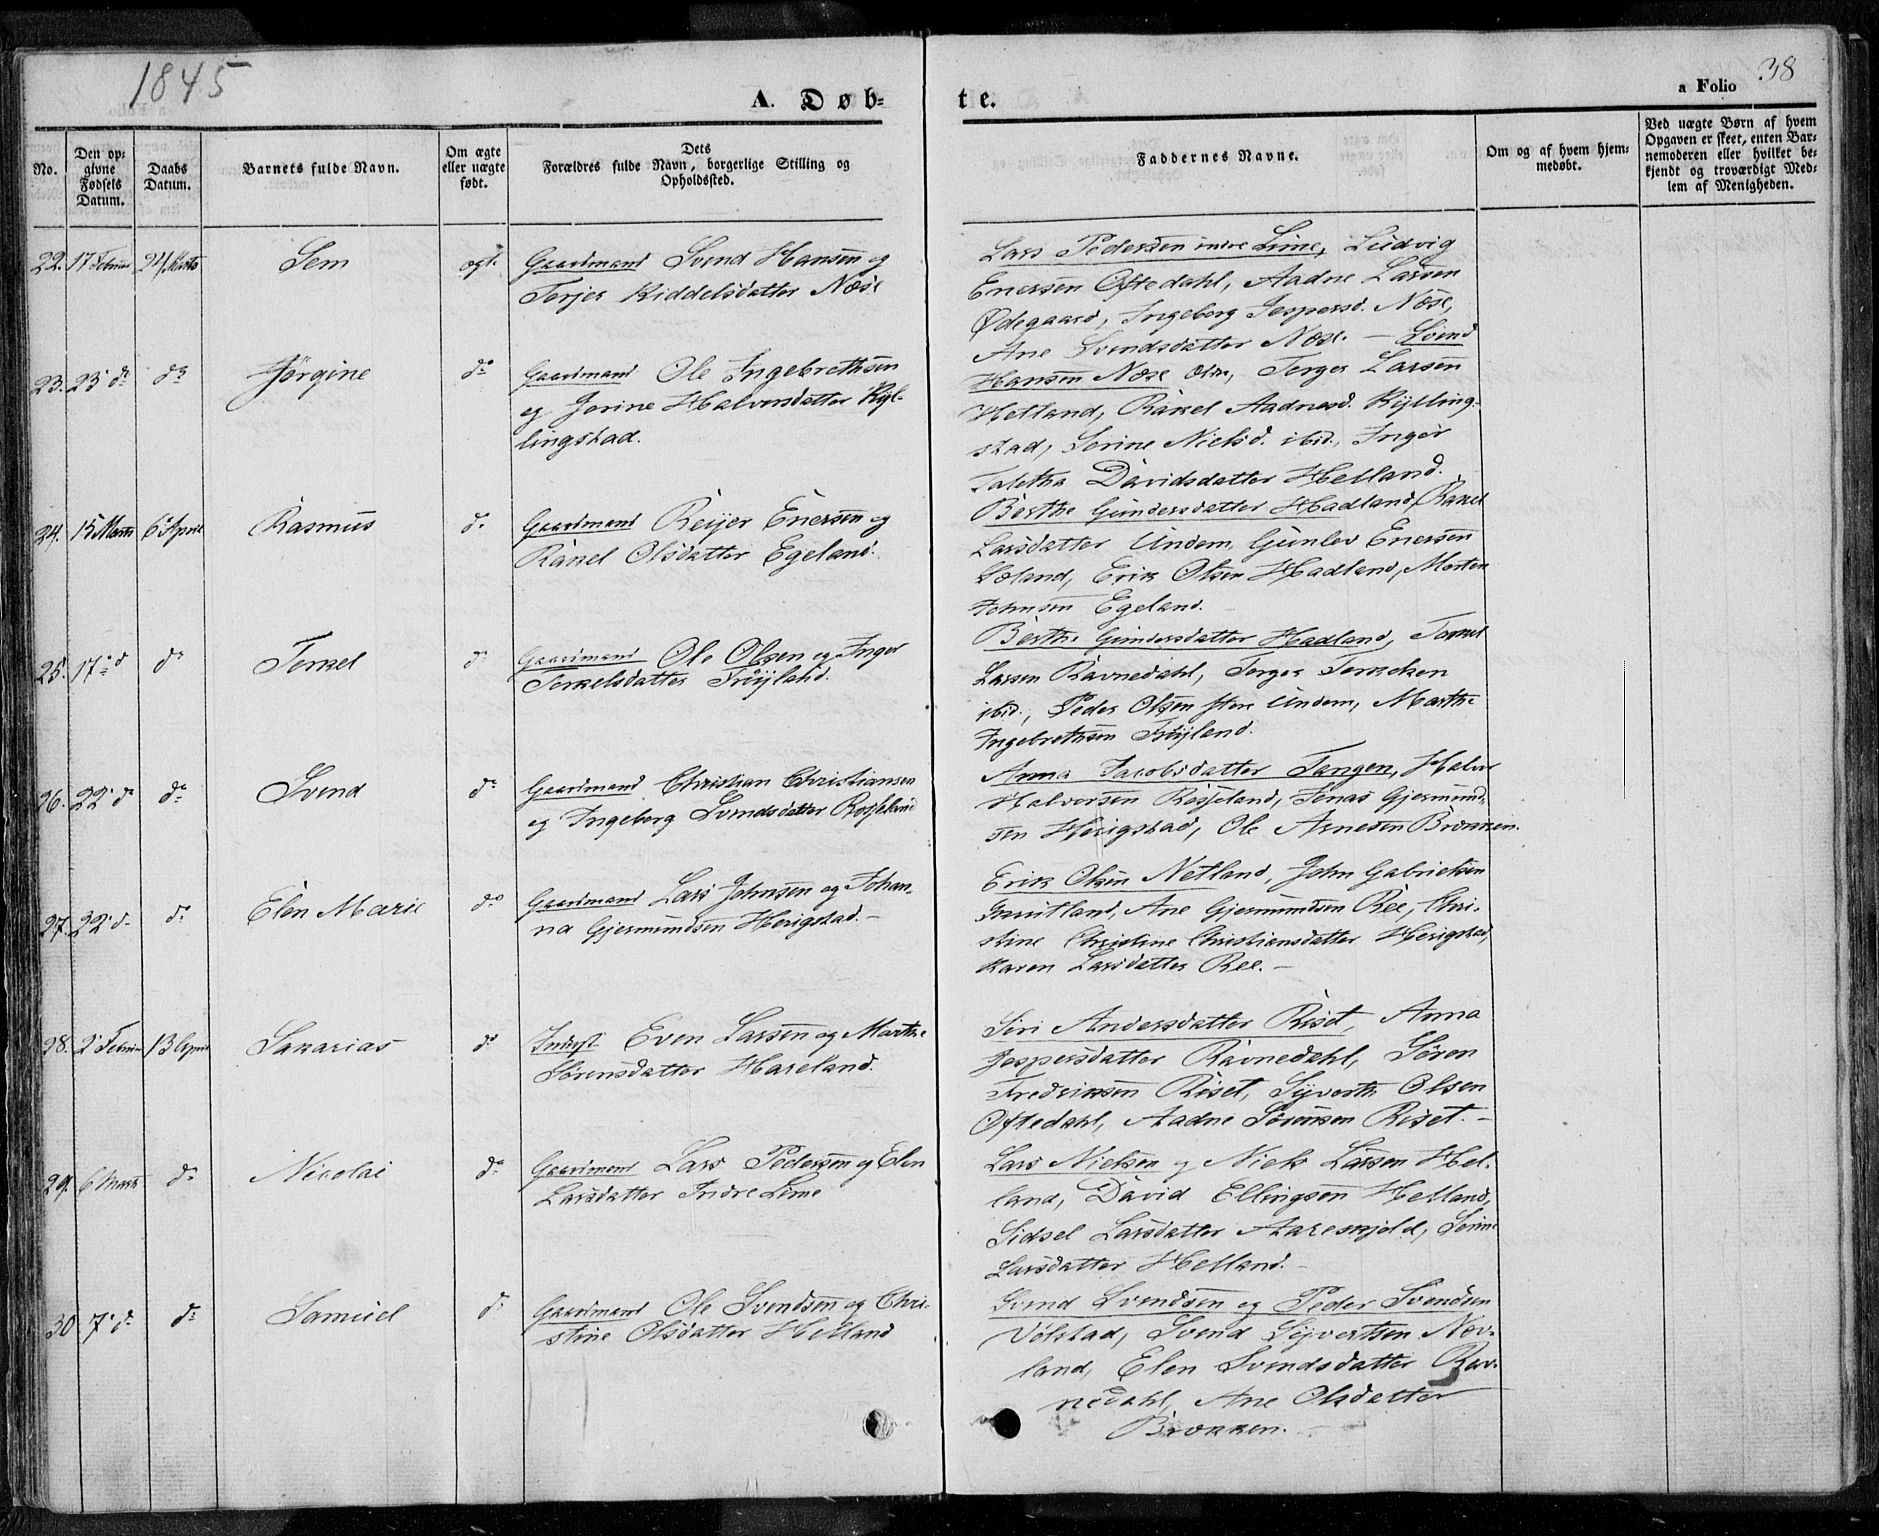 1845
38
A. Døb=
te.
a Folio
No.
Den op=
givne
Fødsels
Datum.
Daabs
Datum.
Barnets fulde Navn.
Om ægte
eller uægte
født.
Dets
Forældres fulde Navn, borgerlige Stilling og
Opholdssted.
Faddernes Navne.
Om og af hvem hjem=
medøbt.
Ved uægte Børn af hvem
Opgaven er skeet, enten Bar=
nemoderen eller hvilket be=
kjendt og troværdigt Med=
lem af Menigheden.
22. 17 Februar 24 Marts Sem ægt. Gaardmand Svend Hansen og
Terjer Kiddelsdatter Næse
Lars Pedersen indre Lime, Ludvig
Enersen Oftedahl, Aadne Larsen
Ødegaard, Ingeborg Jespersd. Næse,
Ane Svendsdatter Næse. — Svend
23. 23 do do Jørgine do Gaardmand Ole Ingebrethsen
og Jorine Halvorsdatter Kyl-
lingstad.
Hansen Næse, Terger Larsen
Hetland, Rakel Aadnesd. Kylling-
stad, Serine Nielsd. ibid., Inger
Taletha Davidsdatter Helland.
24. 15 Marts 6 April Rasmus do Gaardmand Reijer Enersen og
Rakel Olsdatter Egeland.
Berthe Gundersdatter Hadland, Rakel
Larsdatter Undem, Gunlev Enersen
Erik Olsen Hadland, Morten
Johnsen Egeland.
25. 17 d do Torkel do Gaardmand Ole Olsen og Inger
Torkelsdatter Frøyland.
Berthe Gundersdatter Hadland, Torkel
Larsen Ravnedahl, Terger Terkelsen
ibid., Peder Olsen Undem, Marthe
Ingebrethsen Frøyland.
26. 22 do do Svend do Gaardmand Christian Christiansen
og Ingeborg Svendsdatter Rosseland
Anna Jacobsdatter Tangen, Halvor
Halvorsen Rosseland, Jonas Gjermund-
sen Herigstad, Ole Arnesen Brekken.
27. 22 do do Elen Marie do Gaardmand Lars Johnsen og Johan-
na Gjermundsen Herigstad. —
Erik Olsen Netland, John Gabrielsen
Ane Gjermundsen Ree, Chri-
stine Christine Christiansdatter Herigstad,
Karen Larsdatter Ree. —
28. 2 Februar 13 April Sakarias do Inderst Even Larsen og Marthe
Sørensdatter Hareland.
Siri Andersdatter Riset, Anna
Jespersdatter Ravnedahl, Søren
Fredriksen Riset, Syverth Olsen
Oftedahl, Aadne Sørensen Riset. —
29. 6 Marts do Nicolai do Gaardmand Lars Pedersen og Elen
Larsdatter Indre Lime
Lars Nielsen og Niels Larsen Hel-
land, David Ellingsen Helland,
Sidsel Larsdatter Aareskjold, Serine
Larsdatter Helland. —
30 7 do do Samuel do Gaardmand Ole Svendsen og Chri-
stine Olsdatter Helland
Svend Svendsen og Peder Svendsen
Vølstad, Svend Syvertsen Nev-
land, Elen Svendsdatter Rav-
nedahl, Ane Olsdatter
Brekken. —